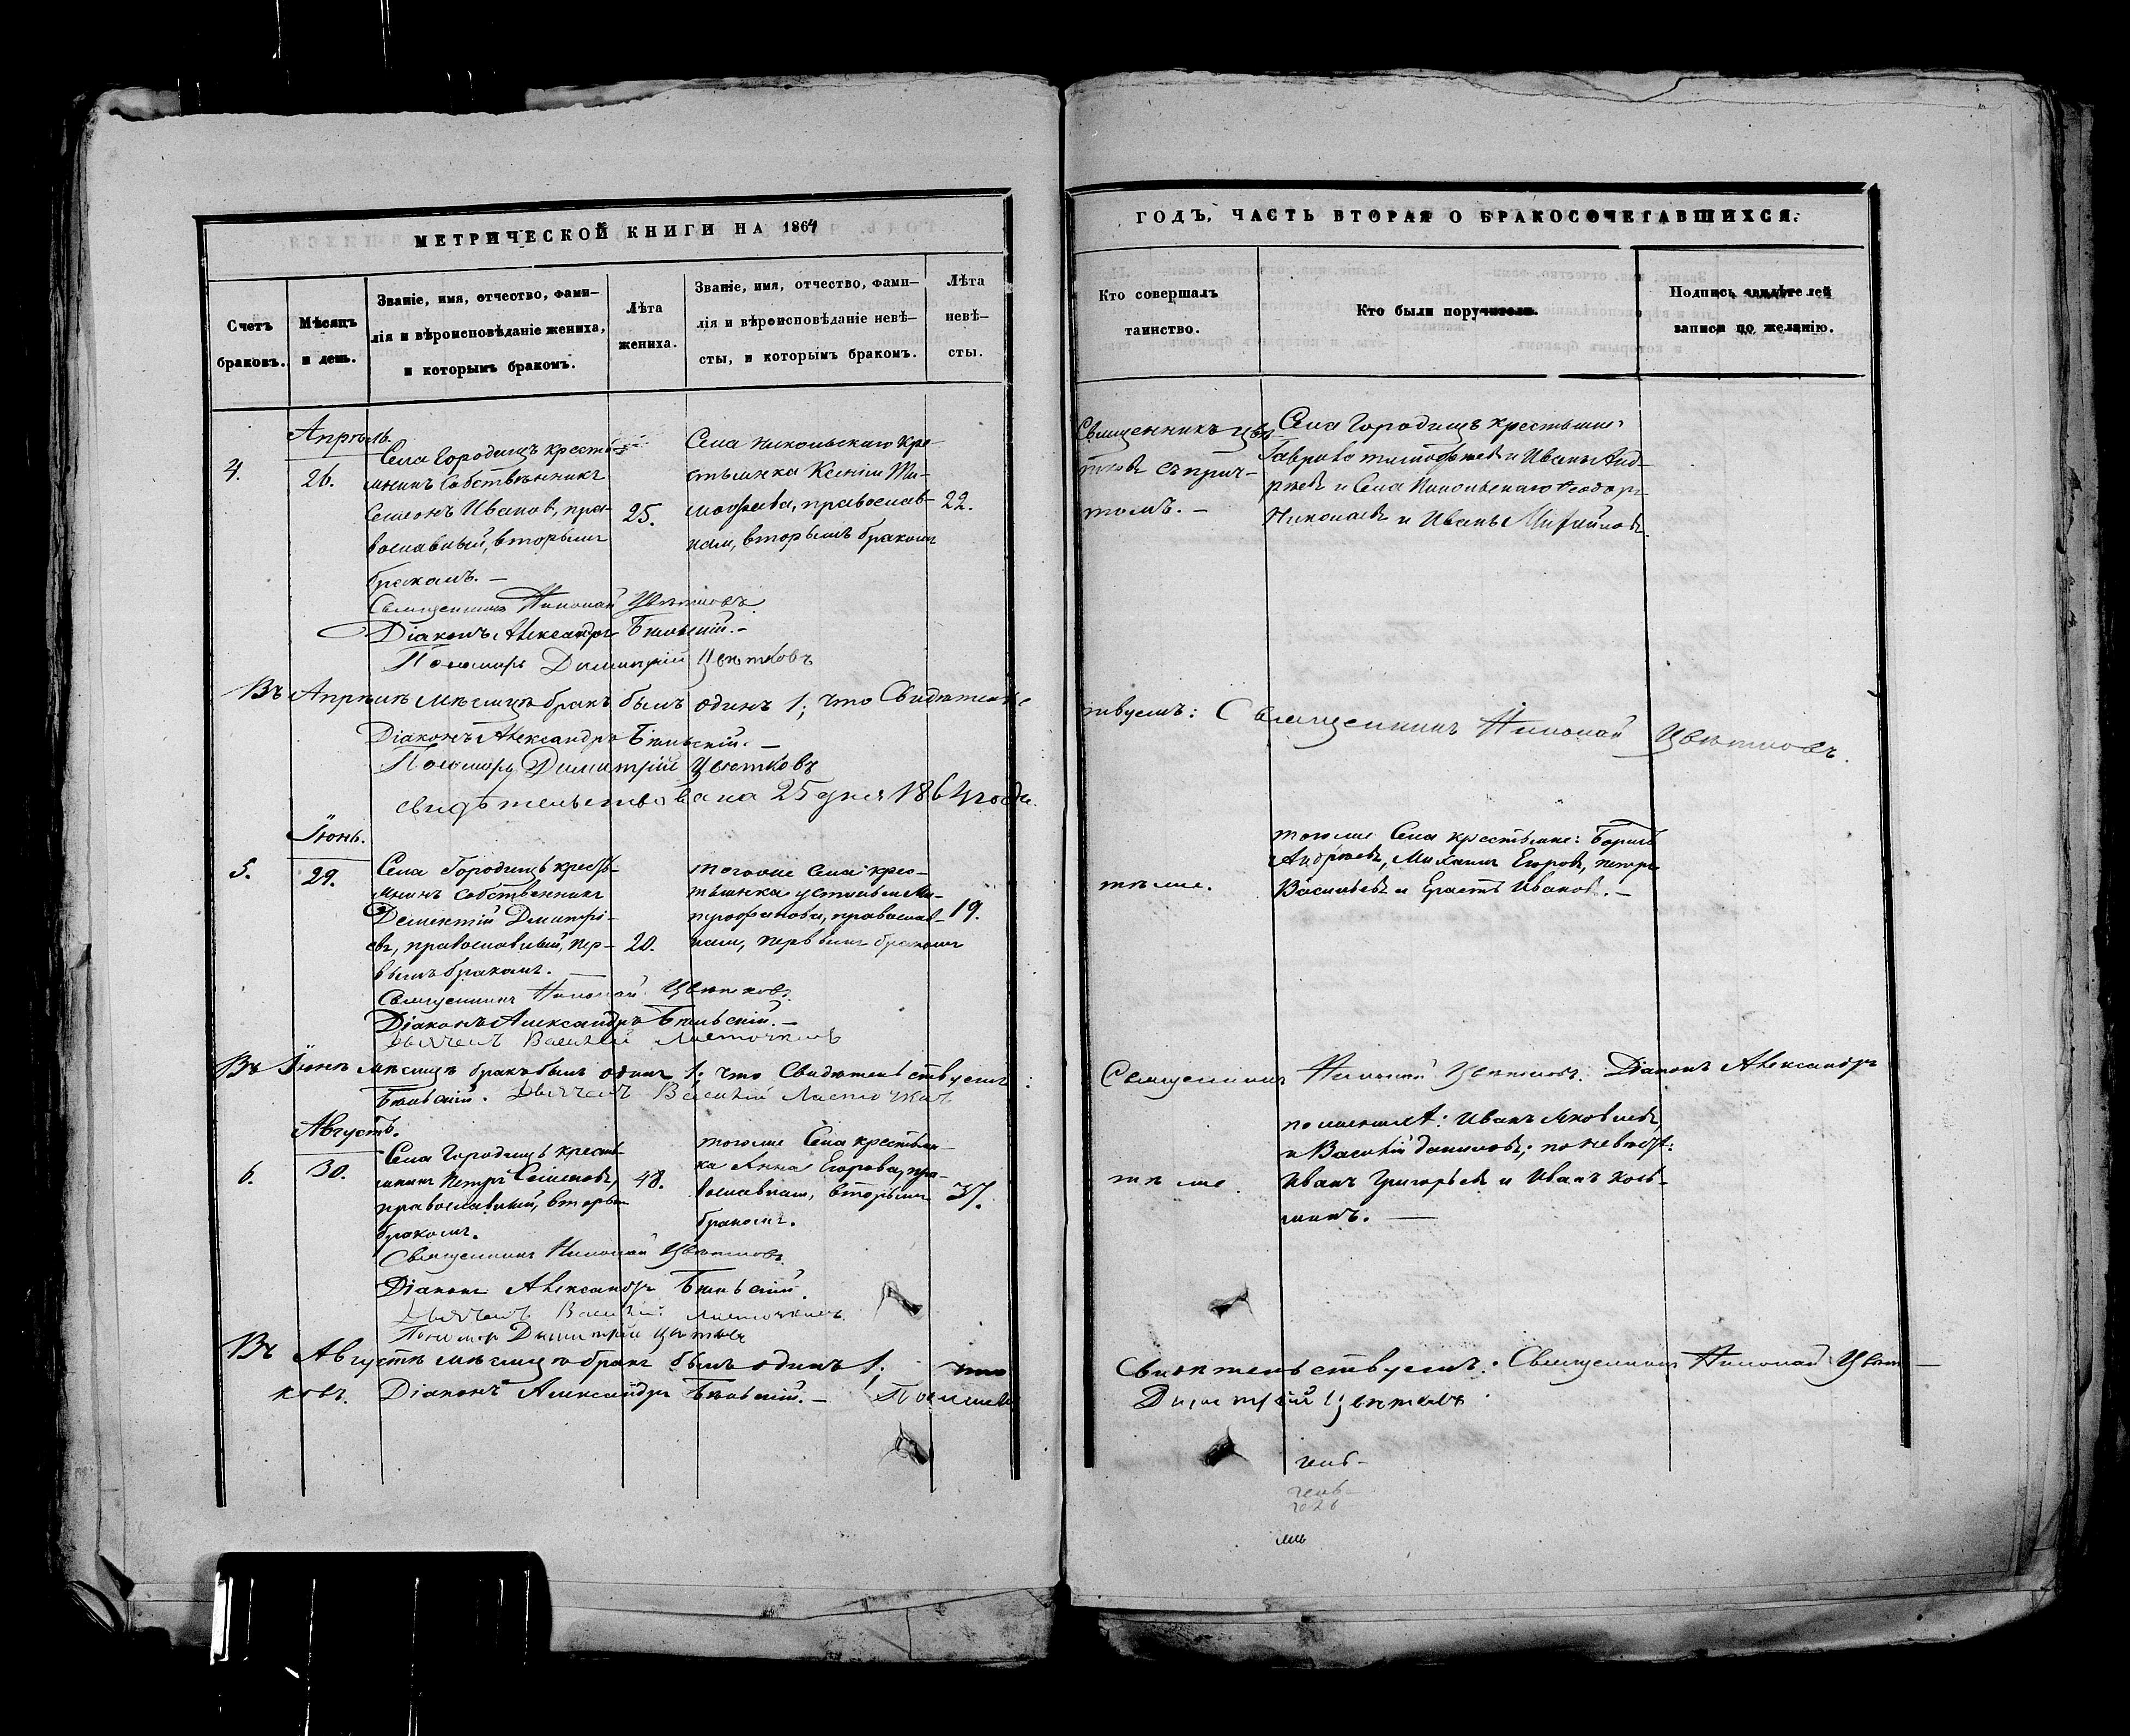 МЕТРИЧЕСКОЙ КНИГИ НА 1864
Счетъ браковъ.
Мѣсяцъ и день.
Званіе, имя, отчество, фами-
лія и вѣроисповѣданіе жениха,
и которымъ бракомъ.
Лѣта
жениха.
Званіе, имя, отчество, фами-
лія и вѣроисповѣданіе невѣ-
сты, и которымъ бракомъ.
Лѣта
невѣ-
сты.
Апрѣль
4.
26.
Села Городищъ кресть-
янинъ собственникъ
Семенъ Ивановъ, пра-
вославный, вторымъ
бракомъ. —
25.
Села Никольскаго кре-
стьянка Ксенія Ти-
мофѣева, православ-
ная, вторымъ бракомъ
22.
Священникъ Николай Цвѣтковъ.
Діаконъ Александръ Бѣльскій. —
Пономарь Димитрій Цвѣтковъ
Въ Апрѣлѣ мѣсяцѣ бракъ былъ одинъ 1; что Свидѣтель
Діаконъ Александръ Бѣльскій. —
Пономарь Димитрій Цвѣтковъ
свидѣтельствована 25 дня 1864 года.
Іюнь.
5.
29.
Села Городищъ кресть-
янинъ собственникъ
Дементій Дмитрі-
евъ, православный, пер-
вымъ бракомъ. —
20.
тогоже села крес-
тьянка Устинья Ми-
трофанова, православ-
ная, первымъ бракомъ
19.
Священникъ Николай Цвѣтковъ.
Діаконъ Александръ Бѣльскій. —
Дьячекъ Василій Ласточкинъ
Въ Іюнѣ мѣсяцѣ бракъ былъ одинъ 1; что Свидѣтельствуемъ:
Бѣльскій. Дьячекъ Василій Ласточкинъ
Августъ.
6.
30.
Села Городищъ кресть-
янинъ Петръ Семеновъ,
православный, вторым
бракомъ.
48.
тогоже Села крестьян-
ка Анна Егорова, пра-
вославная, вторымъ
бракомъ.
37.
Священникъ Николай Цвѣтковъ.
Діаконъ Александръ Бѣльскій.
Дьячекъ Василій Ласточкинъ.
Пономар Димитрій Цвѣтков
Въ Августѣ мѣсяцѣ бракъ былъ одинъ 1; что
ковъ. Діаконъ Александръ Бѣльскій. —
ГОДЪ, ЧАСТЬ ВТОРАЯ О БРАКОСОЧЕТАВШИХСЯ.
Кто совершалъ
таинство.
Кто были поручители.
Подпись свидѣтелей
записи по желанію.
Священникъ Цвѣ-
тковъ съ прич-
томъ. —
Села Городищъ крестьяне:
Гаврило Тимофѣевъ и Иванъ Анд-
рѣевъ и Села Никольскаго Ѳеодоръ
Николаевъ и Иванъ
ствуемъ: Священникъ Николай Цвѣтковъ.
тѣже.
тогоже Села крестьяне: Борисъ
Андрѣевъ, Михаилъ Егоровъ, Петръ
Васильевъ и Ерастъ Ивановъ. —
Священникъ Николай Цвѣтковъ. Діаконъ Александръ
тѣже.
по женихѣ: Иванъ Яковлевъ
и Василій Даниловъ; по невѣстѣ:
Иванъ Григорьевъ и Иванъ Козь-
минъ. —
Свидѣтельствуемъ: Священникъ Николай Цвѣт—
Димитрій Цвѣтковъ